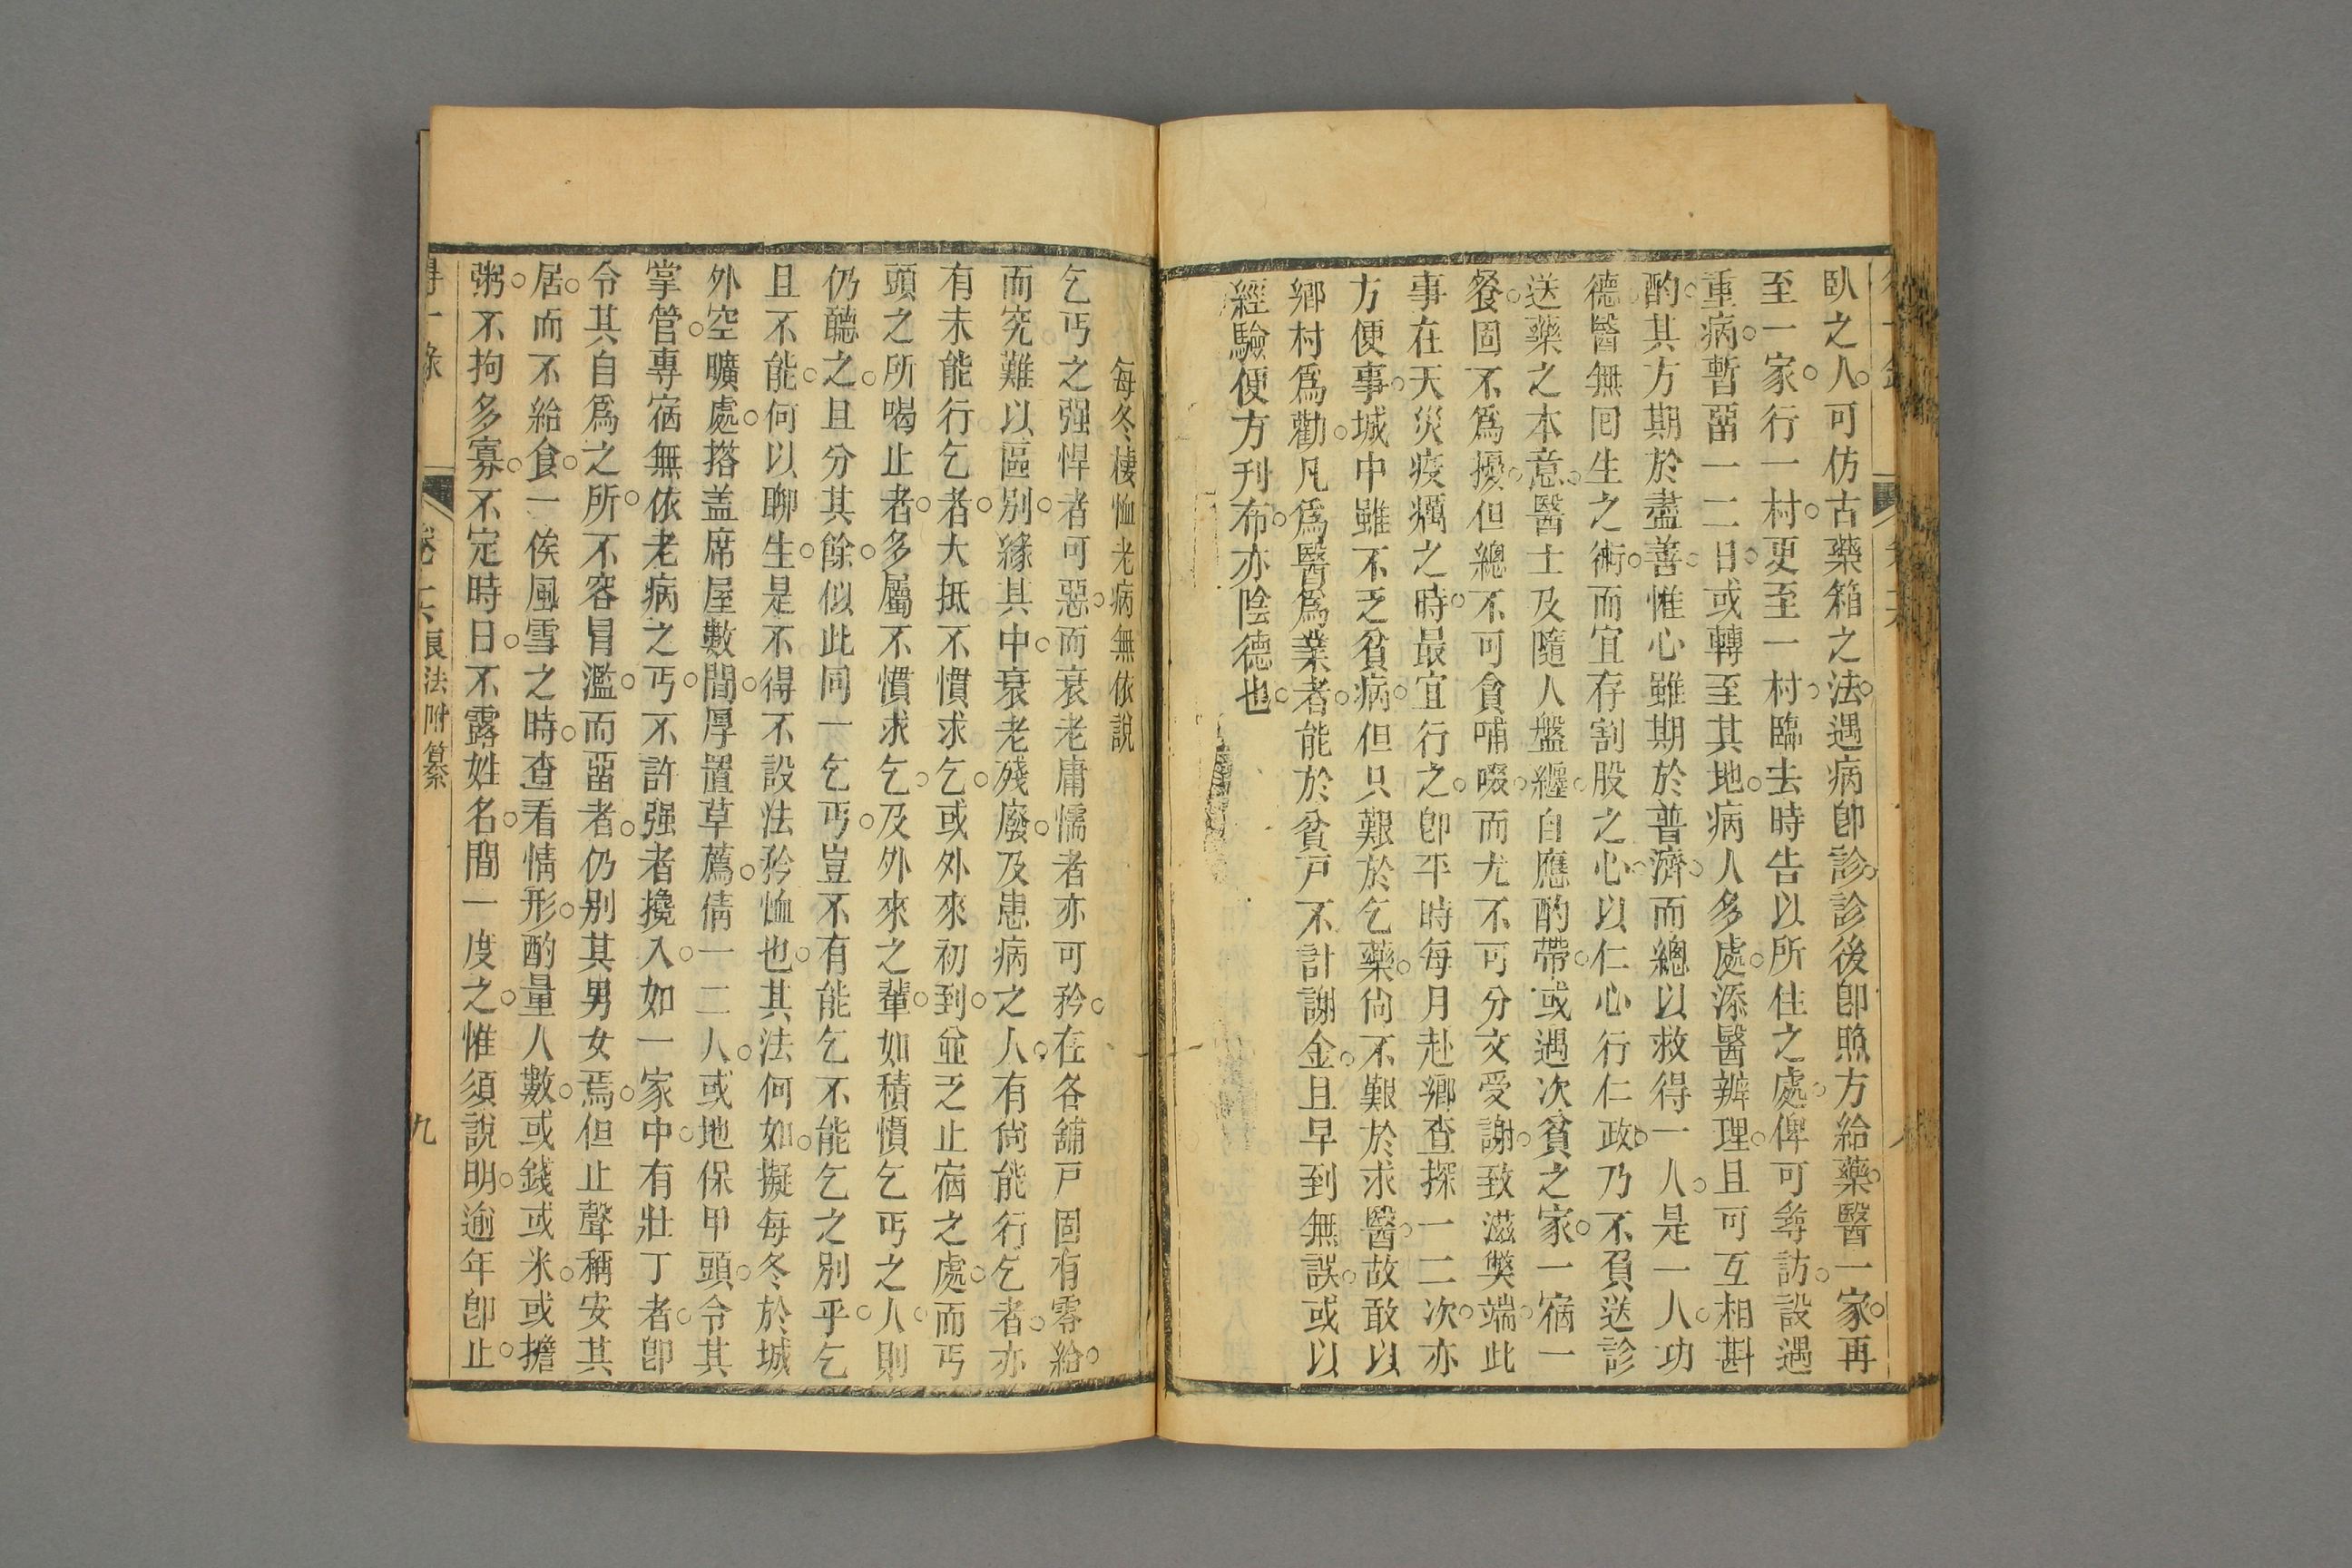 臥之人。可仿古藥箱之法。遇病卽診。診後卽照方給藥。醫一家。再
至一家。行一村。更至一村。臨去時告以所住之處。俾可尋訪。設遇
重病。暫畱一二日。或轉至其地。病人多處。添醫辦理。且可互相斟
酌。其方期於盡善。惟心雖期於普濟。而總以救得一人。是一人。功
德。醫無囘生之術。而宜存割股之心。以仁心行仁政。乃不負送診
送藥之本意。醫士及隨人盤纏。自應酌帶。或遇次貧之家。一宿一
餐。固不爲擾。但總不可貪哺啜。而尤不可分文受謝。致滋獘端。此
事在天災疫癘之時。最宜行之。卽平時每月赴鄉查探一二次。亦
方便事。城中雖不乏貧病。但只艱於乞藥。尙不艱於求醫。故敢以
鄉村爲勸。凡爲醫爲業者。能於貧戸不計謝金。且早到無誤。或以
經驗便方刊布。亦陰德也。
每冬棲恤老病無依說
乞丐之强悍者可惡。而衰老庸懦者亦可矜。在各舖戸固有零給。
而究難以區別。緣其中。衰老殘廢。及患病之人。有尙能行乞者。亦
有未能行乞者。大抵不慣求乞。或外來初到。並乏止宿之處。而丐
頭之所喝止者。多屬不慣求乞。及外來之輩。如積慣乞丐之人。則
仍聽之。且分其餘。似此同一乞丐。豈不有能乞不能乞之別乎。乞
且不能。何以聊生。是不得不設法矜恤也。其法何如。擬每冬於城
外空曠處。搭盖席屋數間。厚置草薦。倩一二人。或地保甲頭。令其
掌管。專宿無依老病之丐。不許强者攙入。如一家中。有壯丁者。卽
令其自爲之所。不容冒濫。而畱者。仍別其男女焉。但止聲稱安其
居。而不給食。一俟風雪之時。查看情形。酌量人數。或錢或米。或擔
粥。不拘多寡。不定時日。不露姓名。間一度之。惟須說明。逾年卽止。
得一錄
卷十六
良法附纂
九